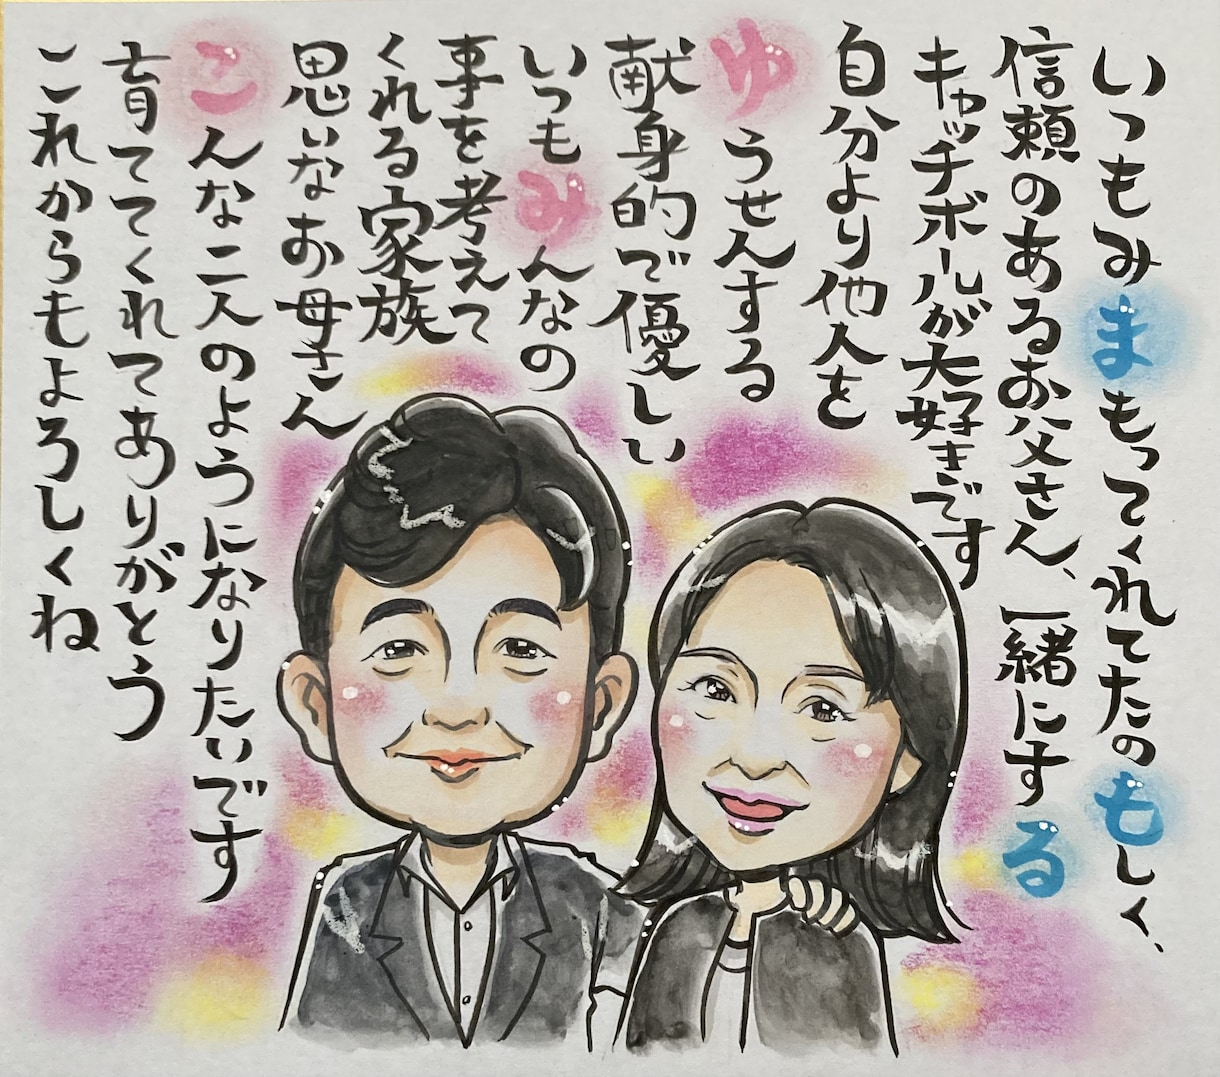 いつもみまもってくれてたのもしく、
信頼のあるお父さん、一緒にする
キャッチボールが大好きです
自分より他人を
ゆうせんする
献身的で優しい
いつもみんなの
事を考えて
くれる家族
思いなお母さん
こんな二人のようになりたいです
育ててくれてありがとう
これからもよろしくね